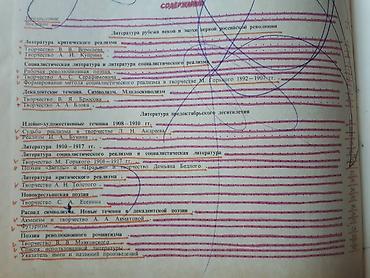 СОДЕРЖАНИЕ
Литература рубежа веков и эпохи первой российской революции
Литература критического реализма
Творчество В. В. Вересаева
Творчество А. И. Куприна
Социалистическая литература и литература социалистического реализма
Рабочая революционная поэзия
Творчество А. С. Серафимовича
Формирование метода социалистического реализма в творчестве М. Горького 1892—1907 гг.
Декадентские течения. Символизм. Младосимволизм
Творчество В. Я. Брюсова
Творчество А. А. Блока
Литература предоктябрьского десятилетия
Идейно-художественные течения 1908—1910 гг.
Судьбы реализма в творчестве Л. Н. Андреева
Реализм И. А. Бунина
Литература 1910—1917 гг.
Литература социалистического реализма и социалистическая литература
Творчество М. Горького 1908—1917 гг.
Поэзия «Звезды» и «Правды» и творчество Демьяна Бедного
Литература критического реализма
Творчество А. Н. Толстого
Новокрестьянская поэзия
Творчество С. А. Есенина
Распад символизма. Новые течения в декадентской поэзии
Акмеизм и творчество А. А. Ахматовой
Футуризм
Поэзия революционного романтизма
Творчество В. В. Маяковского
Список использованной литературы
Указатель имен и названий произведений